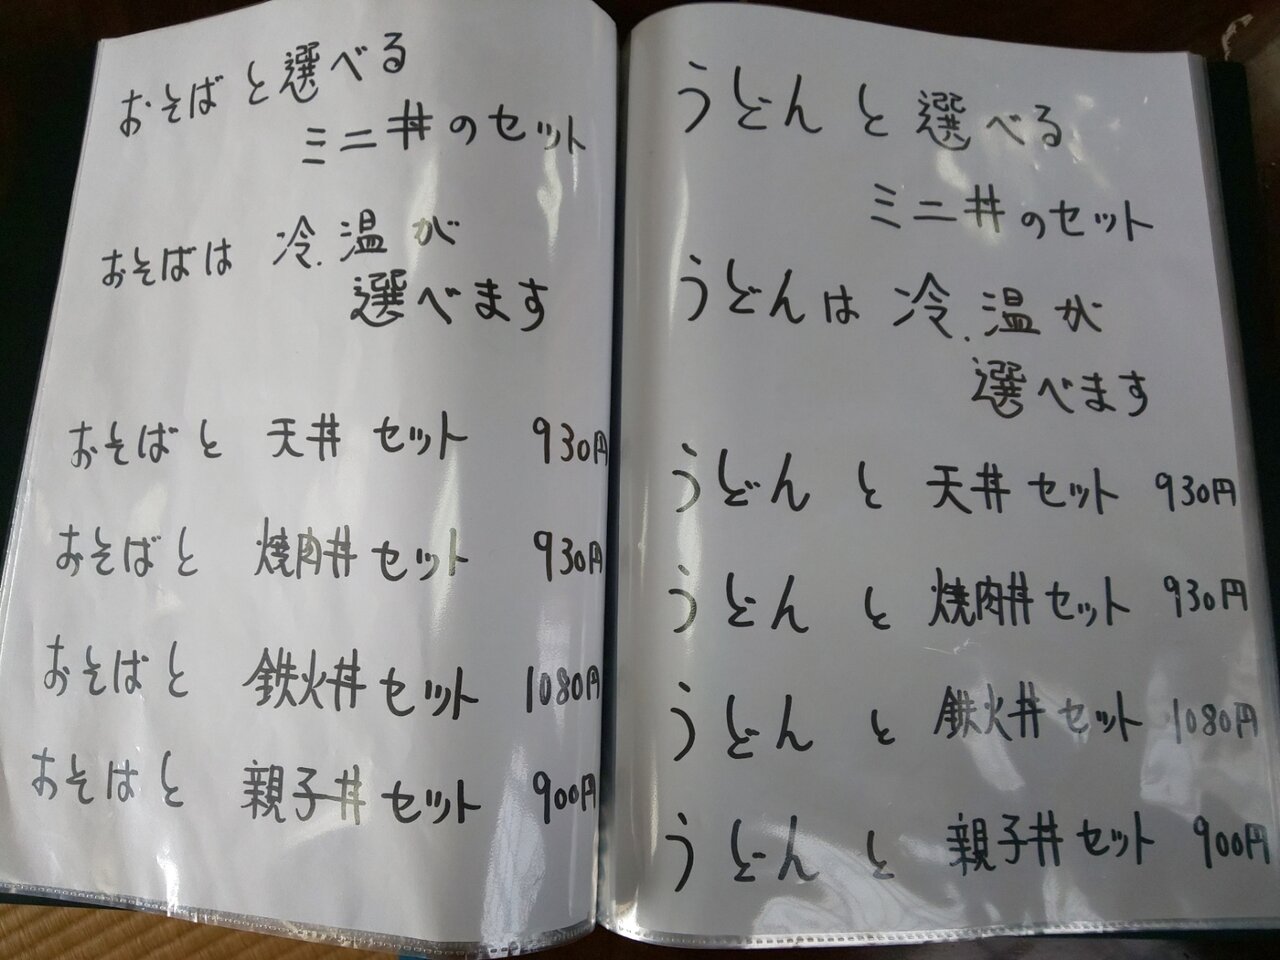 おそばと選べる
ミニ丼のセット
おそばは 冷.温が
選べます
おそばと 天丼セット 930円
おそばと 焼肉丼セット 930円
おそばと 鉄火丼セット 1080円
おそばと 親子丼セット 900円
うどんと選べる
ミニ丼のセット
うどんは 冷.温が
選べます
うどんと 天丼セット 930円
うどんと 焼肉丼セット 930円
うどんと 鉄火丼セット 1080円
うどんと 親子丼セット 900円